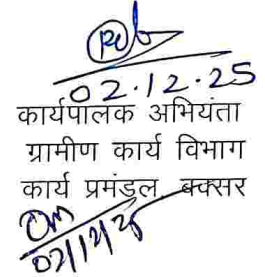 02.12.25
कार्यपालक अभियंता
ग्रामीण कार्य विभाग
कार्य प्रमंडल, बक्सर